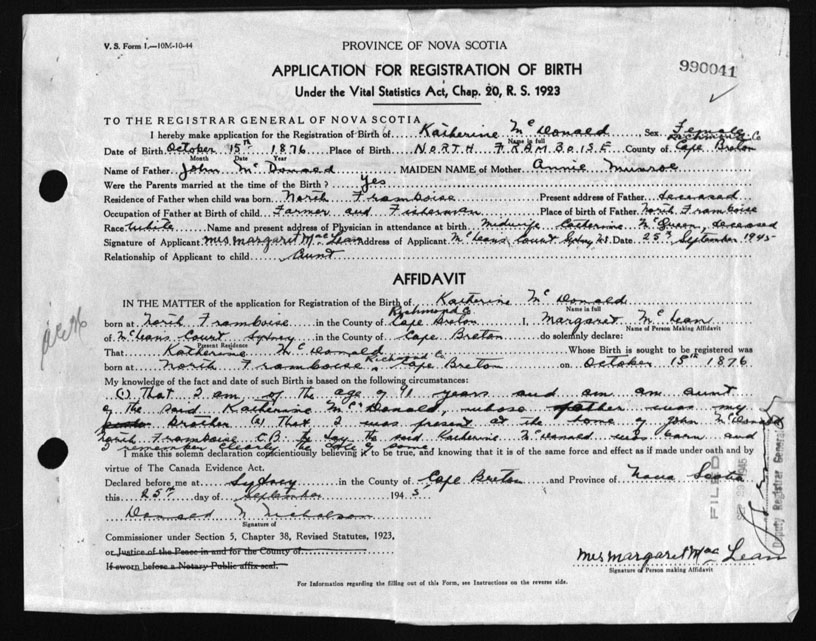 V. S. Form 1.—10M-10-44
PROVINCE OF NOVA SCOTIA
990041
APPLICATION FOR REGISTRATION OF BIRTH
Under the Vital Statistics Act, Chap. 20, R. S. 1923
TO THE REGISTRAR GENERAL OF NOVA SCOTIA
I hereby make application for the Registration of Birth of Katherine McDonald, Sex Female
Name in full Richmond Co
Date of Birth October 15th 1876 Place of Birth NORTH FRAMBOISE County of Cape Breton
Month Date Year
Name of Father John McDonald MAIDEN NAME of Mother Annie Munroe
Were the Parents married at the time of the Birth? Yes
Residence of Father when child was born North Framboise Present address of Father deceased
Occupation of Father at Birth of child Farmer and Fisherman Place of birth of Father North Framboise
Race white Name and present address of Physician in attendance at birth midwife Catherine McQueen, deceased
Signature of Applicant Mrs Margaret MacLean Address of Applicant McLeans Court Sydney NS Date 25th September 1945
Relationship of Applicant to child Aunt
AFFIDAVIT
IN THE MATTER of the application for Registration of the Birth of Katherine McDonald
Richmond Co Name in full
born at North Framboise in the County of Cape Breton I, Margaret McLean
Name of Person Making Affidavit
of McLeans Court Sydney in the County of Cape Breton do solemnly declare:
Present Residence
That Katherine McDonald Whose Birth is sought to be registered was
Richmond Co
born at North Framboise, Cape Breton on October 15th 1876
My knowledge of the fact and date of such Birth is based on the following circumstances:
(1) That I am of the age of 91 years and am an aunt
of the said Katherine McDonald, whose father was my
brother (2) That I was present at the home of John McDonald
North Framboise C.B. the day the said Katherine McDonald was born and
I remember clearly the date of same.
I make this solemn declaration conscientiously believing it to be true, and knowing that it is of the same force and effect as if made under oath and by
virtue of The Canada Evidence Act.
Declared before me at Sydney in the County of Cape Breton and Province of Nova Scotia
this 25th day of September 1945
Signature of
Commissioner under Section 5, Chapter 38, Revised Statutes, 1923,
or Justice of the Peace in and for the County of
If sworn before a Notary Public affix seal.
Mrs Margaret Mac Lean
Signature of Person making Affidavit
For Information regarding the filling out of this Form, see Instructions on the reverse side.
FILED
Deputy Registrar General